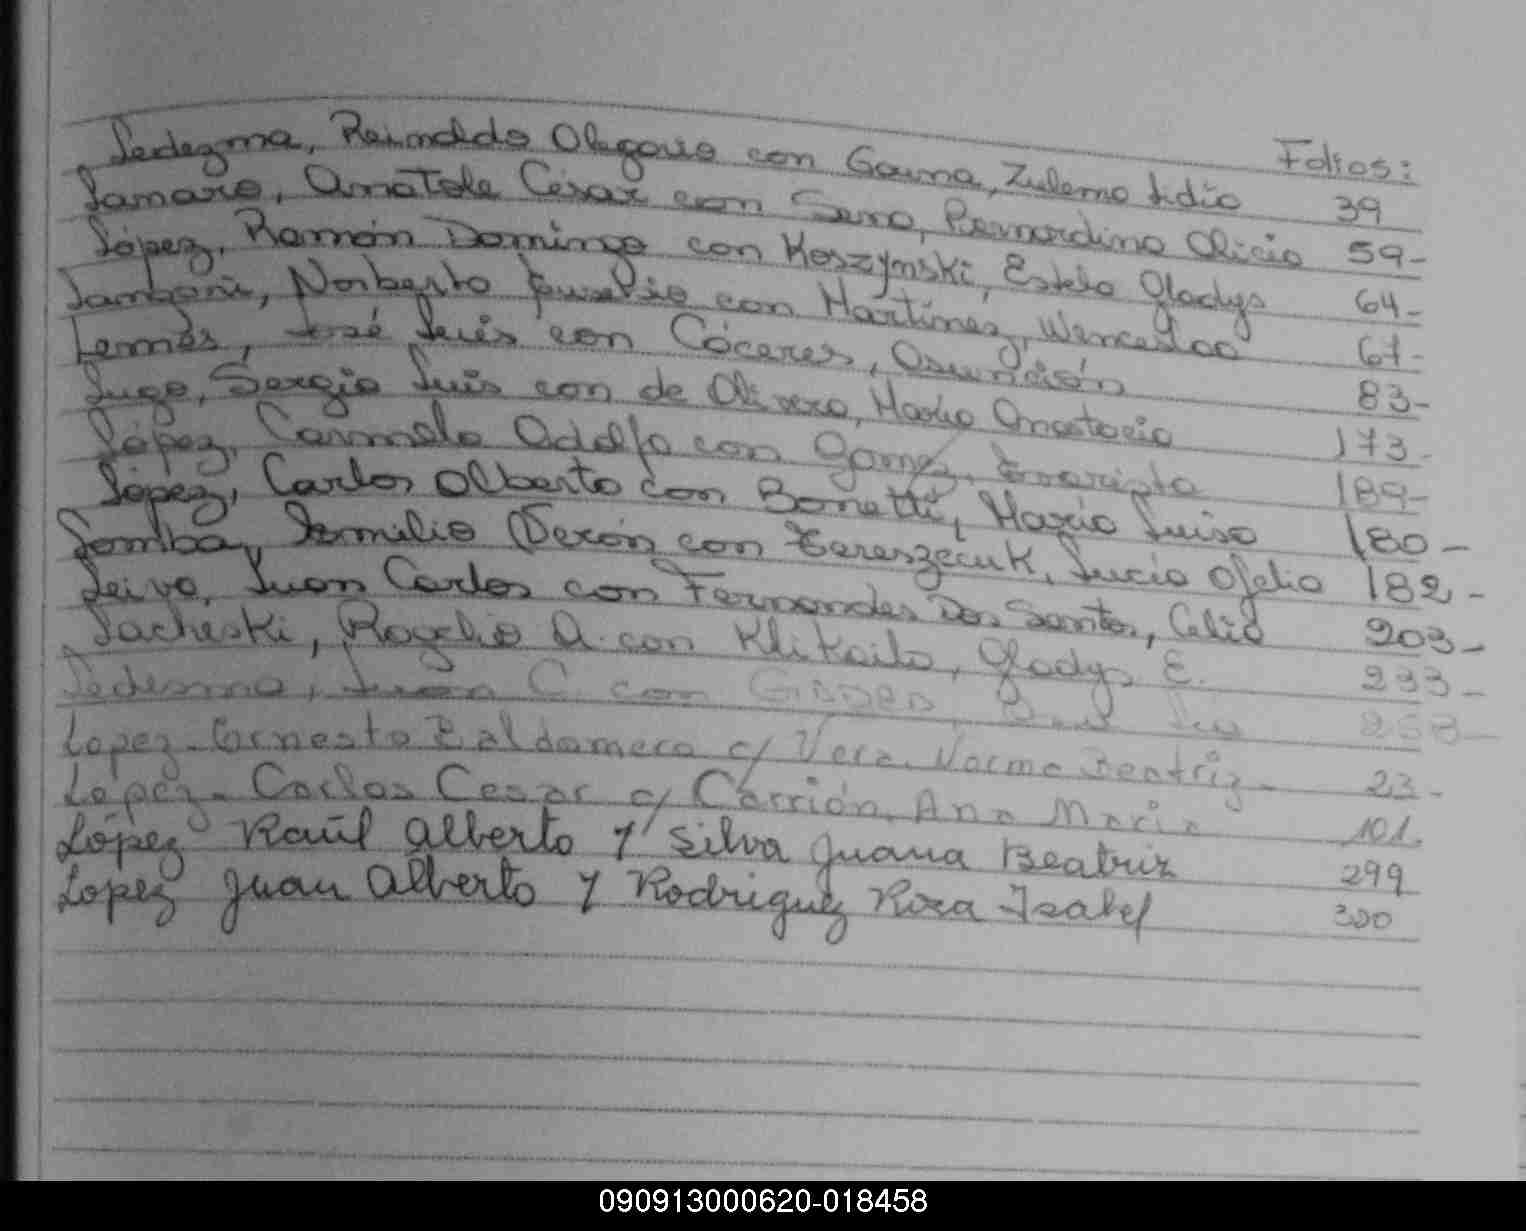 Folios:
Ledezma, Reinaldo Olegario con Gauna, Zulema Lidia 39
Lamare, Anatole César con Sexo, Bernardina Alicia 59-
López, Ramón Domingo con Koszynski, Estela Gladys 64-
Lamboni, Norberto con Martínez, Wenceslaa 67-
Lemes, José Luis con Cáceres, Asunción 83-
Lugo, Sergio Luis con de Olivera, María Anastacia 173-
López, Carmelo Adolfo con Gomez, Evarista 189-
López, Carlos Alberto con Bonetti, María Luisa 180-
Lomba, Emilio con Lucía Ofelia 182-
Leiva, Juan Carlos con Fernandes Dos Santos, Celia 203-
Lacheski, Rogelio A. con Klikailo, Gladys E. 233-
Ledesma, Juan C. con
Lopez- Ernesto Baldomero c/ Vera, Norma Beatriz- 23-
López- Carlos Cesar c/ Carrión, Ana Maria 101.
López Raúl Alberto y Silva Juana Beatriz 299
Lopez Juan Alberto y Rodriguez Rosa Isabel 300
090913000620-018458